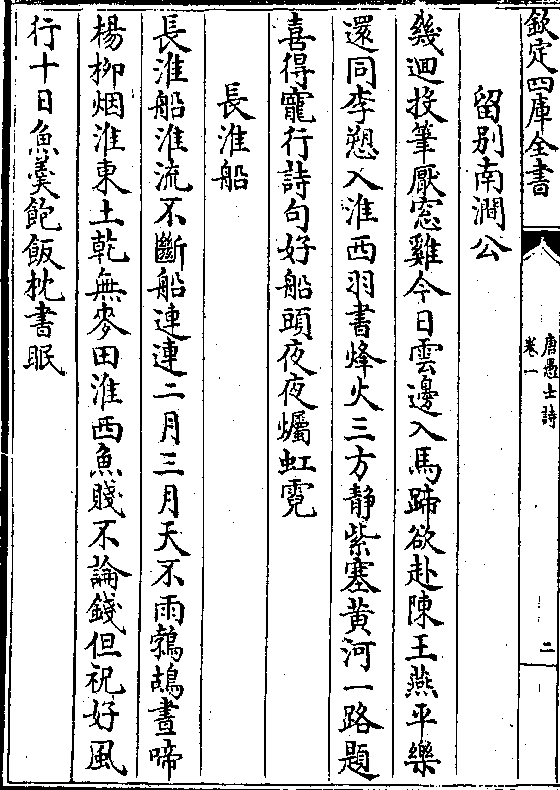 欽定四庫全書
唐愚士詩
卷一
二
留别南澗公
幾迴投筆厭窓雞今日雲邊入馬蹄欲赴陳王燕平樂
還同李愬入淮西羽書烽火三方静紫塞黄河一路題
喜得寵行詩句好船頭夜夜爥虹霓
長淮船
長淮船淮流不斷船連連二月三月天不雨鵓鴣晝啼
楊柳烟淮東土乾無麥田淮西魚賤不論錢但祝好風
行十日魚羮飽飯枕書眠